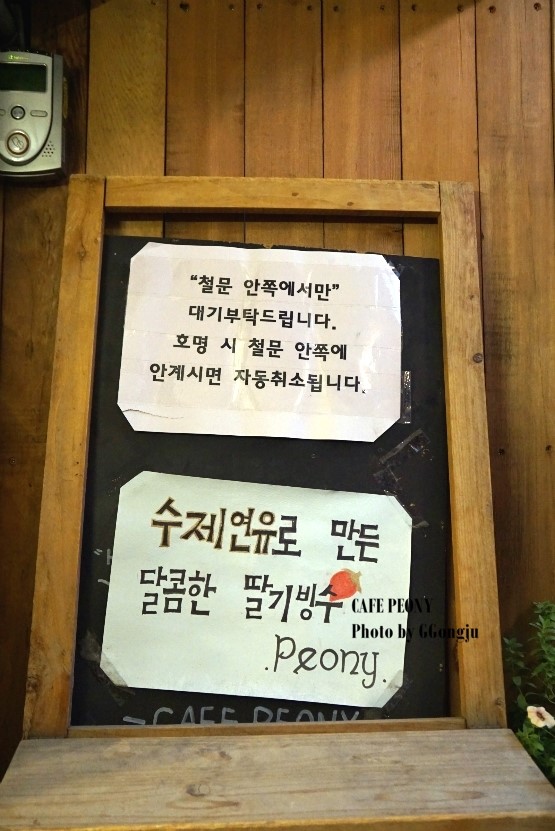 “철문 안쪽에서만”
대기부탁드립니다.
호명 시 철문 안쪽에
안계시면 자동취소됩니다.
수제연유로 만든
달콤한 딸기빙수
.Peony.
CAFE PEONY
Photo by GGongju
-CAFE PEONY